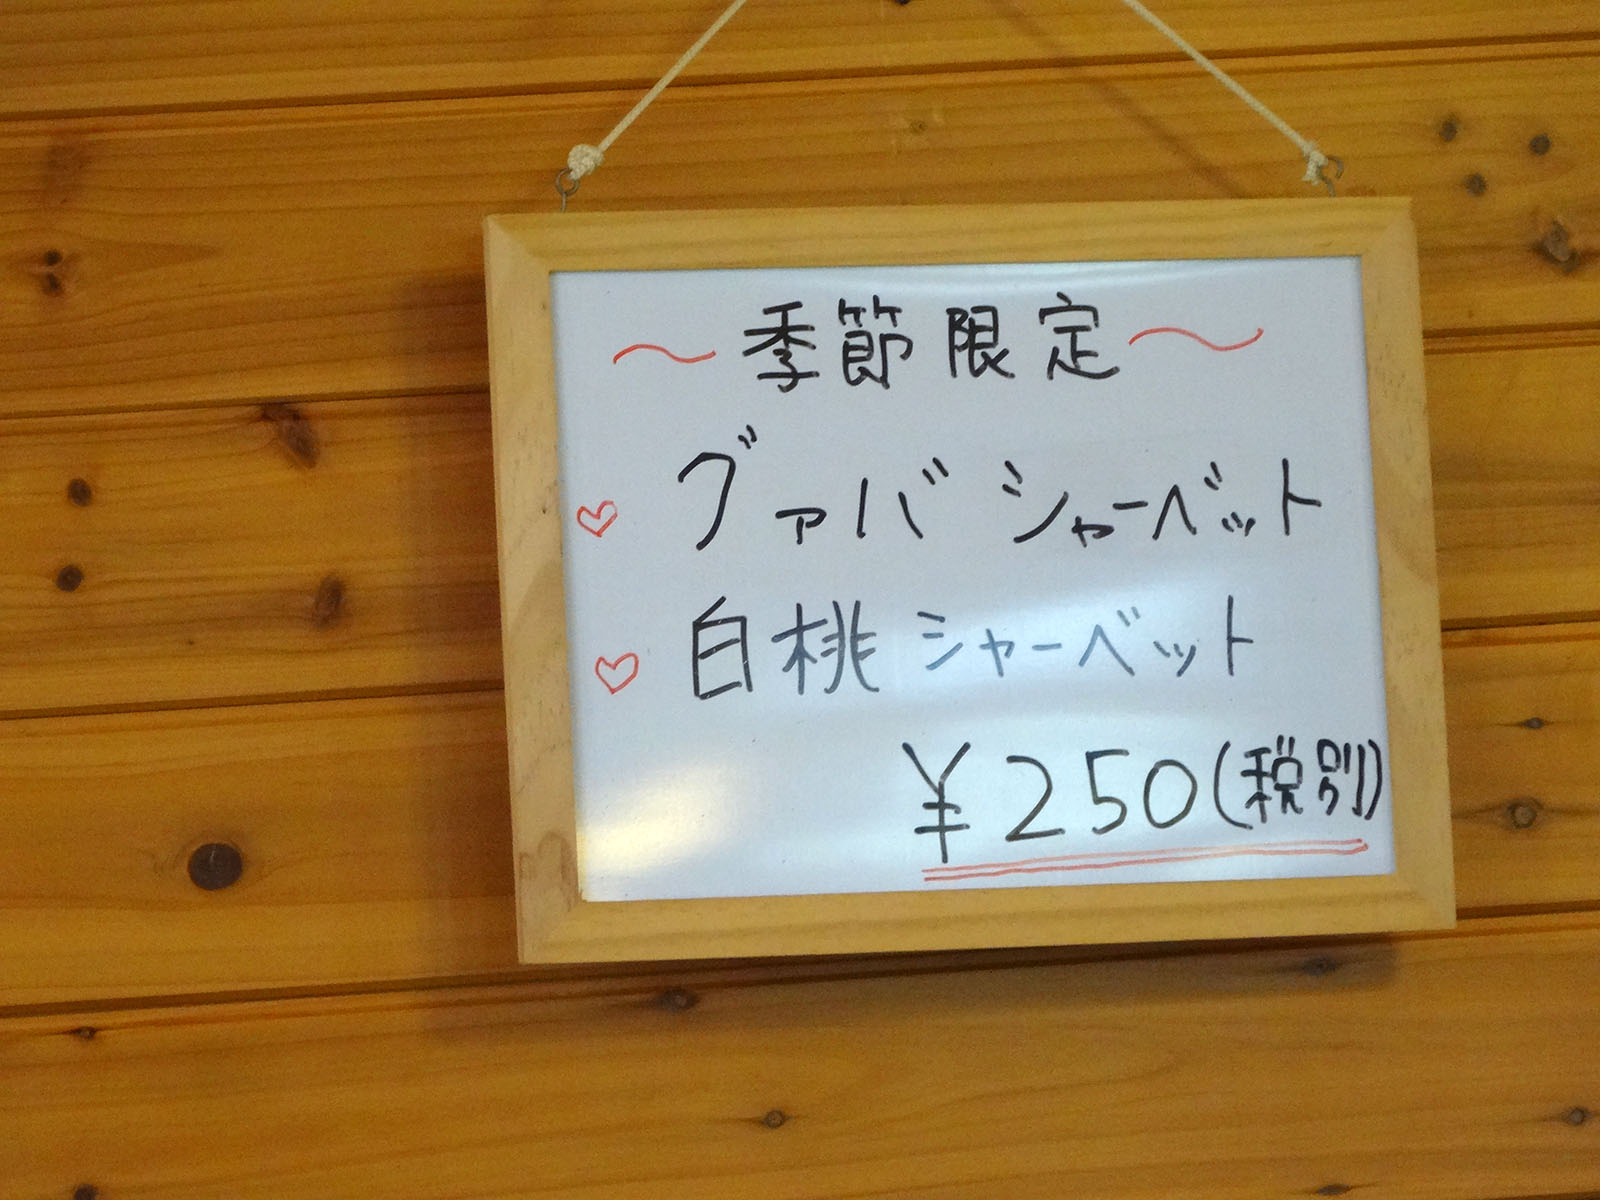 〜季節限定〜
♡ グァバシャーベット
♡ 白桃シャーベット
¥250(税別)